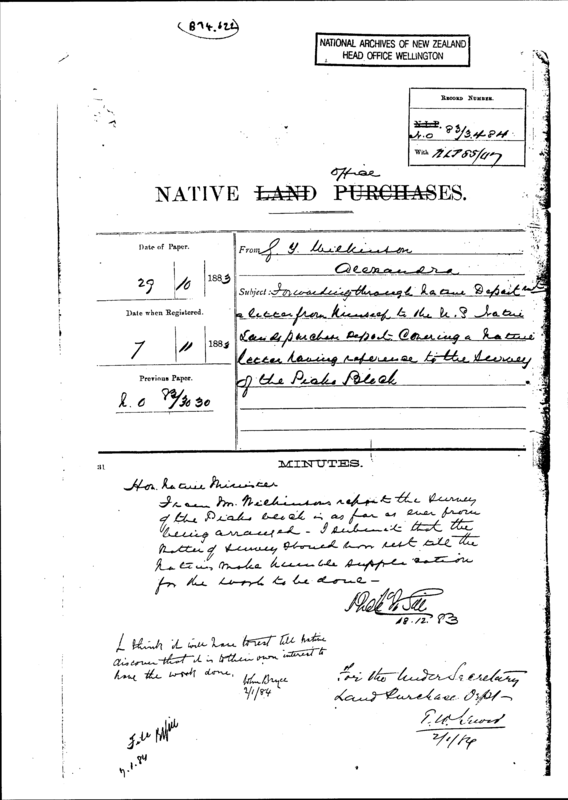 (B74.622)
NATIONAL ARCHIVES OF NEW ZEALAND
HEAD OFFICE WELLINGTON
RECORD NUMBER.
N.L.P.
N.O 83/3484
With NLP 85/
office
NATIVE LAND PURCHASES.
Date of Paper.
29 / 10 1883
Date when Registered.
7 / 11 1883
Previous Paper.
N.O 83/3030
From G. T. Wilkinson
Alexandra
Subject: Forwarding through Native Department
a letter from himself to the U.S Native
Lands purchase Depart Covering a Native
letter having reference to the Survey
of the Piako Block
MINUTES.
Hon. Native Minister
From Mr. Wilkinsons report the survey
of the Piako block is as far as ever from
being arranged - I submit that the
matter of survey should now rest till the
Natives make humble supplication
for the work to be done -
18.12.83
I think it will have to rest till Natives
discover that it is to their own interest to
have the work done.
John Bryce
2/1/84
For the Under Secretary
Land Purchase Dept -
2/1/84
File
7.1.84